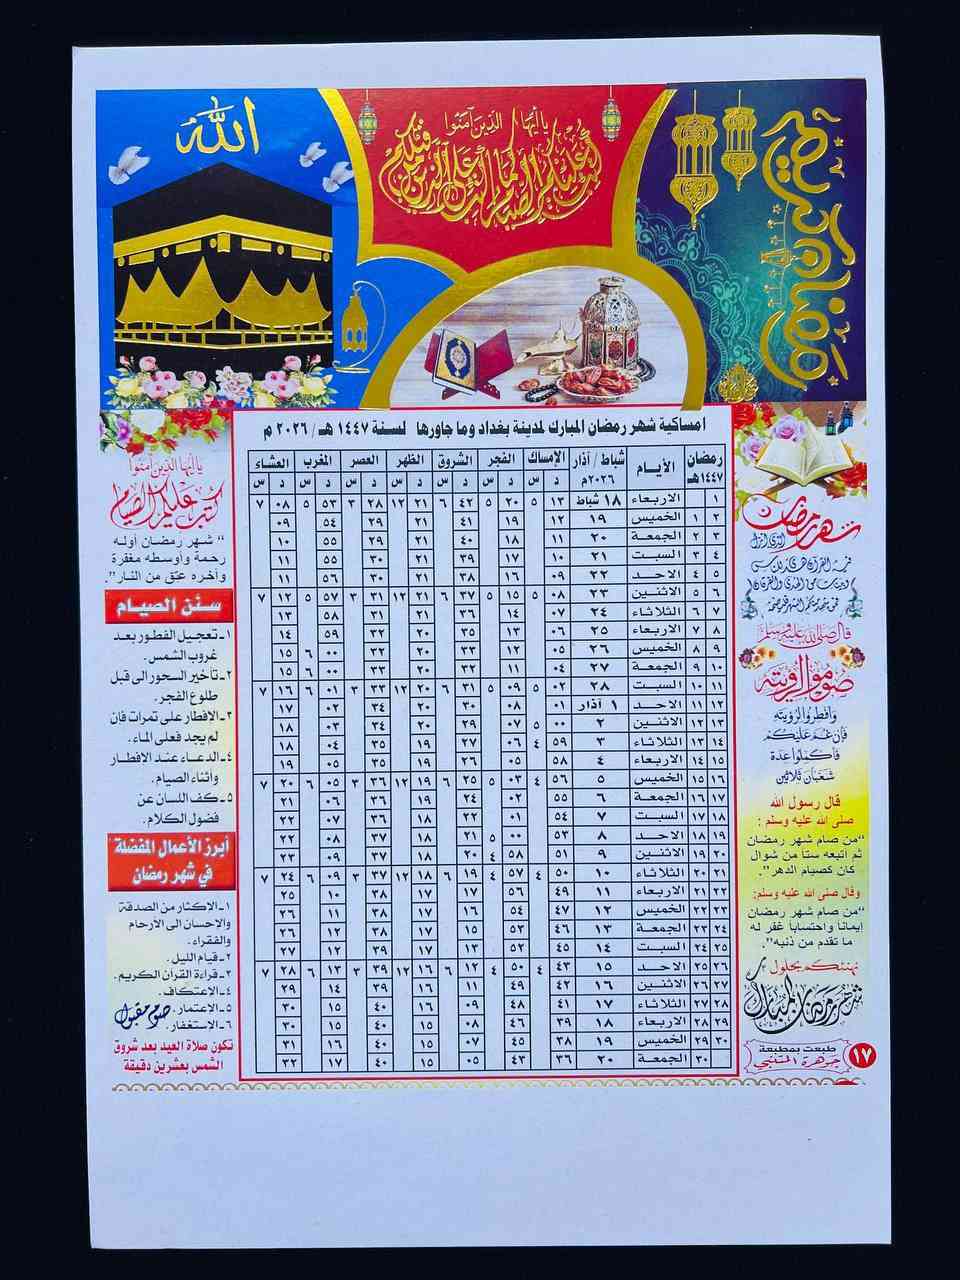 الله
يا أيها الذين آمنوا
كتب عليكم الصيام كما كتب على الذين من قبلكم
رمضان كريم
امساكية شهر رمضان المبارك لمدينة بغداد وما جاورها لسنة ١٤٤٧ هـ / ٢٠٢٦ م
رمضان ١٤٤٧هـ الأيـام شباط / آذار ٢٠٢٦م الإمساك الفجر الشروق الظهر العصر المغرب العشاء
د س د س د س د س د س د س د س
١ الاربعاء ١٨ شباط ١٣ ٥ ٢٠ ٥ ٤٢ ٦ ٢١ ١٢ ٢٨ ٣ ٥٣ ٥ ٠٨ ٧
٢ ١ الخميس ١٩ ١٢ ١٩ ٤١ ٢١ ٢٩ ٥٤ ٠٩
٣ ٢ الجمعة ٢٠ ١١ ١٨ ٤٠ ٢١ ٢٩ ٥٥ ١٠
٤ ٣ السبت ٢١ ١٠ ١٧ ٣٩ ٢١ ٣٠ ٥٥ ١١
٥ ٤ الاحد ٢٢ ٠٩ ١٦ ٣٨ ٢١ ٣٠ ٥٦ ١١
٦ ٥ الاثنين ٢٣ ٠٨ ٥ ١٥ ٥ ٣٧ ٦ ٢١ ١٢ ٣١ ٣ ٥٧ ٥ ١٢ ٧
٧ ٦ الثلاثاء ٢٤ ٠٧ ١٤ ٣٦ ٢١ ٣١ ٥٨ ١٣
٨ ٧ الاربعاء ٢٥ ٠٦ ١٣ ٣٥ ٢٠ ٣٢ ٥٩ ١٤
٩ ٨ الخميس ٢٦ ٠٥ ١٢ ٣٣ ٢٠ ٣٢ ٠٠ ٦ ١٥
١٠ ٩ الجمعة ٢٧ ٠٤ ١١ ٣٢ ٢٠ ٣٣ ٠٠ ٦ ١٥
١١ ١٠ السبت ٢٨ ٠٢ ٥ ٠٩ ٥ ٣١ ٦ ٢٠ ١٢ ٣٣ ٣ ٠١ ٦ ١٦ ٧
١٢ ١١ الاحد ١ آذار ٠١ ٠٨ ٣٠ ٢٠ ٣٤ ٠٢ ١٧
١٣ ١٢ الاثنين ٢ ٠٠ ٥ ٠٧ ٢٩ ٢٠ ٣٤ ٠٣ ١٨
١٤ ١٣ الثلاثاء ٣ ٥٩ ٤ ٠٦ ٢٧ ١٩ ٣٥ ٠٤ ١٨
١٥ ١٤ الاربعاء ٤ ٥٨ ٠٥ ٢٦ ١٩ ٣٥ ٠٥ ١٩
١٦ ١٥ الخميس ٥ ٥٦ ٤ ٠٣ ٥ ٢٥ ٦ ١٩ ١٢ ٣٦ ٣ ٠٥ ٦ ٢٠ ٧
١٧ ١٦ الجمعة ٦ ٥٥ ٠٢ ٢٤ ١٩ ٣٦ ٠٦ ٢١
١٨ ١٧ السبت ٧ ٥٤ ٠١ ٢٢ ١٨ ٣٦ ٠٧ ٢٢
١٩ ١٨ الاحد ٨ ٥٣ ٠٠ ٥ ٢١ ١٨ ٣٧ ٠٨ ٢٢
٢٠ ١٩ الاثنين ٩ ٥١ ٥٨ ٤ ٢٠ ١٨ ٣٧ ٠٩ ٢٣
٢١ ٢٠ الثلاثاء ١٠ ٥٠ ٤ ٥٧ ٤ ١٩ ٦ ١٨ ١٢ ٣٧ ٣ ٠٩ ٦ ٢٤ ٧
٢٢ ٢١ الاربعاء ١١ ٤٩ ٥٦ ١٧ ١٧ ٣٨ ١٠ ٢٥
٢٣ ٢٢ الخميس ١٢ ٤٧ ٥٤ ١٦ ١٧ ٣٨ ١١ ٢٦
٢٤ ٢٣ الجمعة ١٣ ٤٦ ٥٣ ١٥ ١٧ ٣٨ ١٢ ٢٦
٢٥ ٢٤ السبت ١٤ ٤٥ ٥٢ ١٣ ١٧ ٣٩ ١٢ ٢٧
٢٦ ٢٥ الاحد ١٥ ٤٣ ٤ ٥٠ ٤ ١٢ ٦ ١٦ ١٢ ٣٩ ٣ ١٣ ٦ ٢٨ ٧
٢٧ ٢٦ الاثنين ١٦ ٤٢ ٤٩ ١١ ١٦ ٣٩ ١٤ ٢٩
٢٨ ٢٧ الثلاثاء ١٧ ٤١ ٤٨ ٠٩ ١٦ ٤٠ ١٥ ٣٠
٢٩ ٢٨ الاربعاء ١٨ ٣٩ ٤٦ ٠٨ ١٥ ٤٠ ١٥ ٣٠
٣٠ ٢٩ الخميس ١٩ ٣٨ ٤٥ ٠٧ ١٥ ٤٠ ١٦ ٣١
٣٠ الجمعة ٢٠ ٣٦ ٤٣ ٠٥ ١٥ ٤٠ ١٧ ٣٢
شهر رمضان
الذي انزل
فيه القرآن هدى للناس
وبينات من الهدى والفرقان
فمن شهد منكم الشهر فليصمه
قال صلى الله عليه وسلم
صوموا لرؤيته
وافطروا لرؤيته
فإن غم عليكم
فأكملوا عدة
شعبان ثلاثين
قال رسول الله
صلى الله عليه وسلم :
"من صام شهر رمضان
ثم اتبعه ستا من شوال
كان كصيام الدهر"
وقال صلى الله عليه وسلم:
"من صام شهر رمضان
إيمانا واحتسابا غفر له
ما تقدم من ذنبه".
نهنئكم بحلول
شهر رمضان المبارك
طبعت بمطبعة
جوهرة المتنبي
١٧
يا أيها الذين آمنوا
كتب عليكم الصيام
" شهر رمضان أوله
رحمة وأوسطه مغفرة
وآخره عتق من النار".
سنن الصيام
١- تعجيل الفطور بعد
غروب الشمس.
٢- تأخير السحور الى قبل
طلوع الفجر.
٣- الإفطار على تمرات فان
لم يجد فعلى الماء.
٤- الدعاء عند الافطار
وأثناء الصيام.
٥- كف اللسان عن
فضول الكلام.
أبرز الأعمال المفضلة
في شهر رمضان
١- الاكثار من الصدقة
والإحسان الى الأرحام
والفقراء.
٢- قيام الليل.
٣- قراءة القرآن الكريم.
٤- الاعتكاف.
٥- الاعتمار.
٦- الاستغفار.
صوم مقبول
تكون صلاة العيد بعد شروق
الشمس بعشرين دقيقة